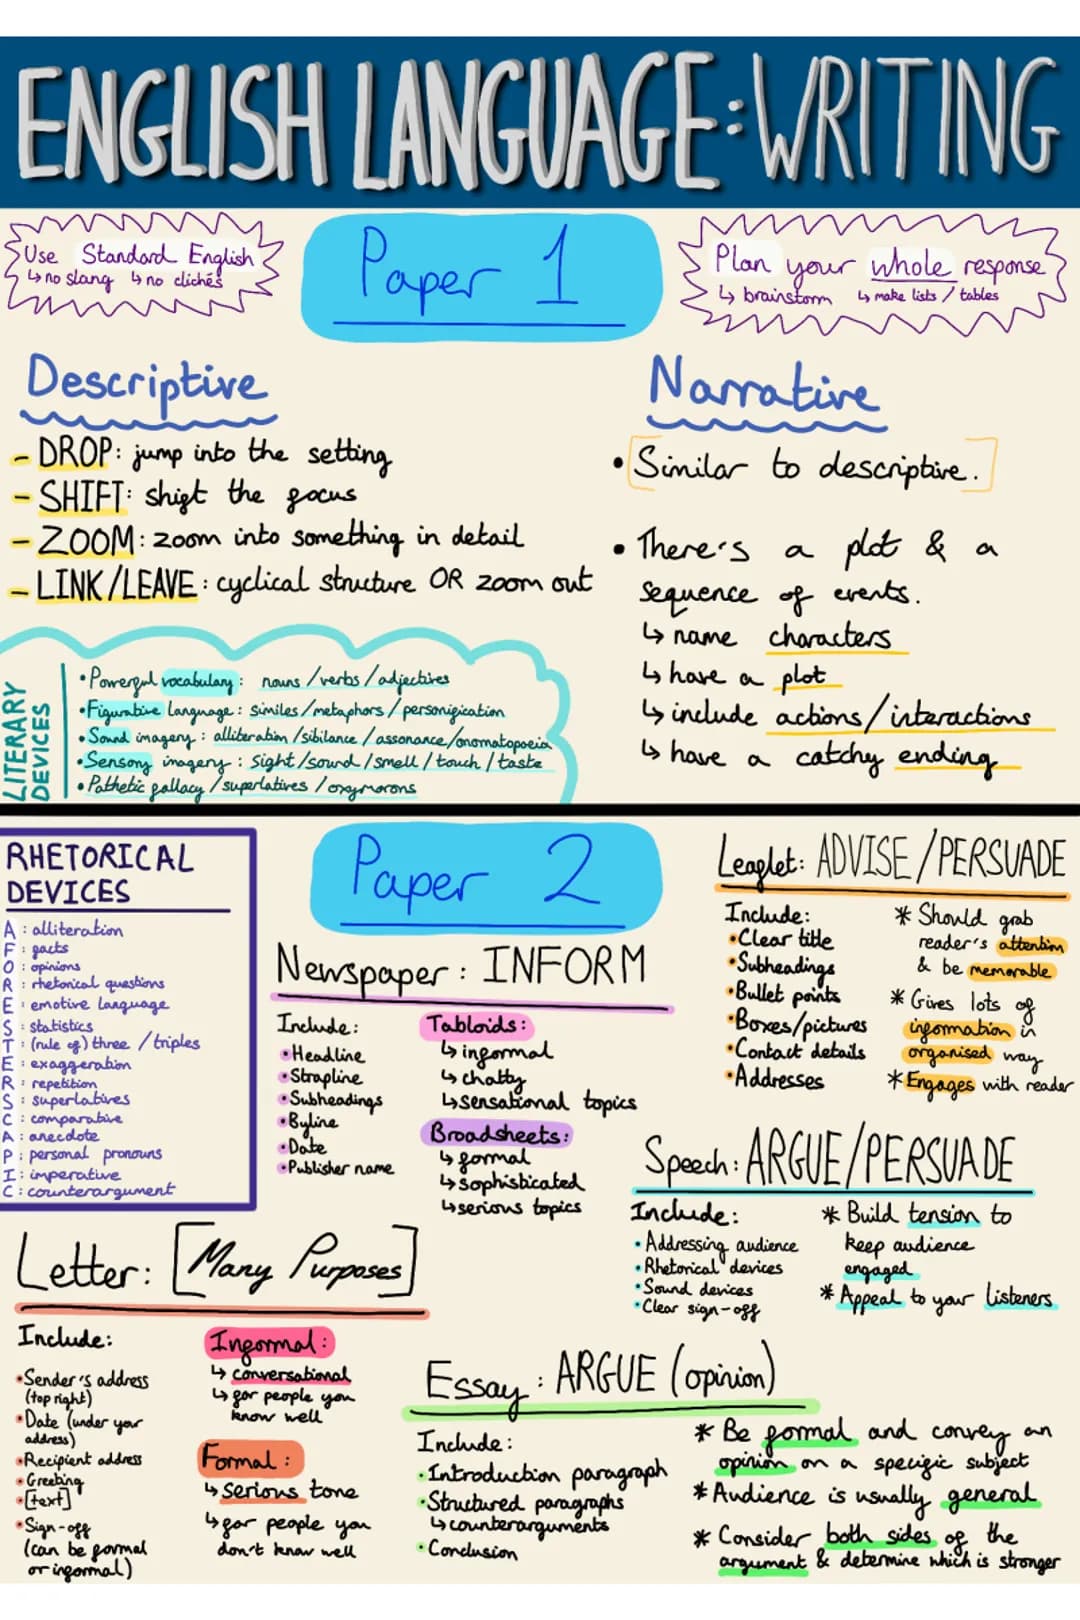 ENGLISH LANGUAGE: WRITING
Use Standard English
↳ no slang ↳ no clichés
Paper 1
Plan your whole response
↳ brainstorm ↳ make lists / tables
Descriptive
- DROP: jump into the setting
- SHIFT: shift the focus
- ZOOM: zoom into something in detail
- LINK/LEAVE: cyclical structure OR zoom out
LITERARY
DEVICES
• Powerful vocabulary: nouns / verbs / adjectives
• Figurative Language: similes / metaphors / personification
• Sound imagery: alliteration / sibilance / assonance / onomatopoeia
• Sensory imagery: sight / sound / smell / touch / taste
• Pathetic fallacy / superlatives / oxymorons
Narrative
• [Similar to descriptive.]
• There's a plot & a
sequence of events.
↳ name characters
↳ have a plot
↳ include actions / interactions
↳ have a catchy ending
RHETORICAL
DEVICES
A: alliteration
F: facts
O: opinions
R: rhetorical questions
E: emotive language
S: statistics
T: (rule of) three / triples
E: exaggeration
R: repetition
S: superlatives
C: comparative
A: anecdote
P: personal pronouns
I: imperative
C: counterargument
Paper 2
Newspaper: INFORM
Include:
• Headline
• Strapline
• Subheadings
• Byline
• Date
• Publisher name
Tabloids:
↳ informal
↳ chatty
↳ sensational topics
Broadsheets:
↳ formal
↳ sophisticated
↳ serious topics
Leaflet: ADVISE/PERSUADE
Include:
• Clear title
• Subheadings
• Bullet points
• Boxes/pictures
• Contact details
• Addresses
* Should grab
reader's attention
& be memorable
* Gives lots of
information in
organised way
* Engages with reader
Speech: ARGUE/PERSUADE
Include:
• Addressing audience
• Rhetorical devices
• Sound devices
• Clear sign-off
* Build tension to
keep audience
engaged
* Appeal to your listeners
Letter: [Many Purposes]
Include:
• Sender's address
(top right)
• Date (under your
address)
• Recipient address
• Greeting
• [text]
• Sign-off
(can be formal
or informal)
Informal:
↳ conversational
↳ for people you
know well
Formal:
↳ Serious tone
↳ for people you
don't know well
Essay: ARGUE (opinion)
Include:
• Introduction paragraph
• Structured paragraphs
↳ counterarguments
• Conclusion
* Be formal and convey an
opinion on a specific subject
* Audience is usually general
* Consider both sides of the
argument & determine which is stronger